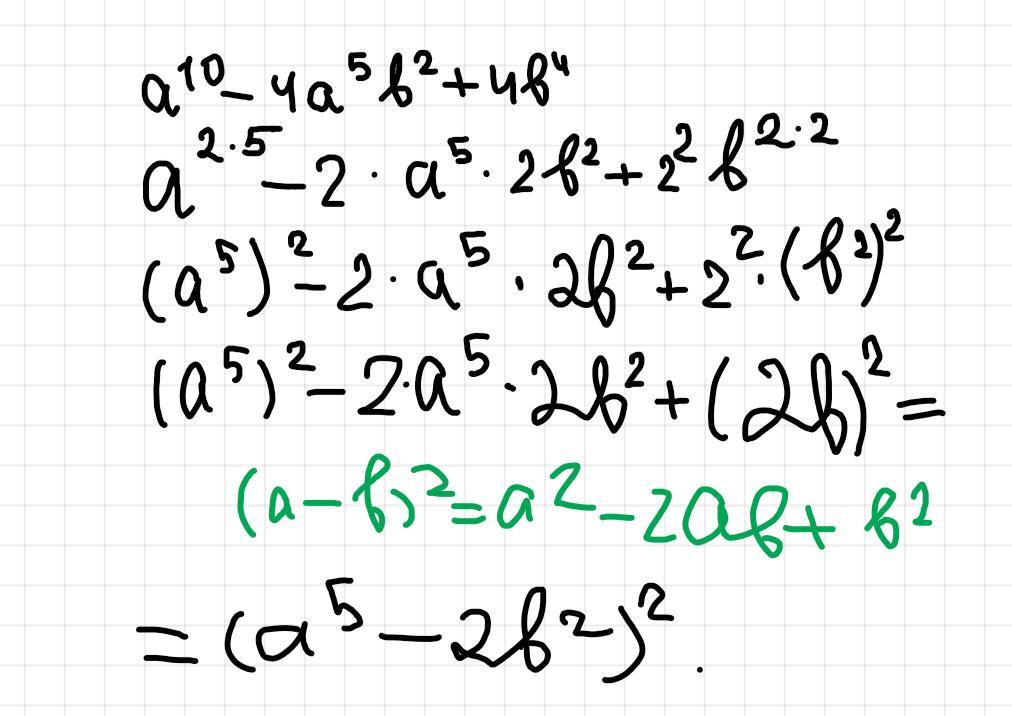 a¹⁰ - 4a⁵b² + 4b⁴
a²·⁵ - 2 · a⁵ · 2b² + 2² b²·²
(a⁵)² - 2 · a⁵ · 2b² + 2² · (b²)²
(a⁵)² - 2 · a⁵ · 2b² + (2b)² =
(a - b)² = a² - 2ab + b²
= (a⁵ - 2b²)².